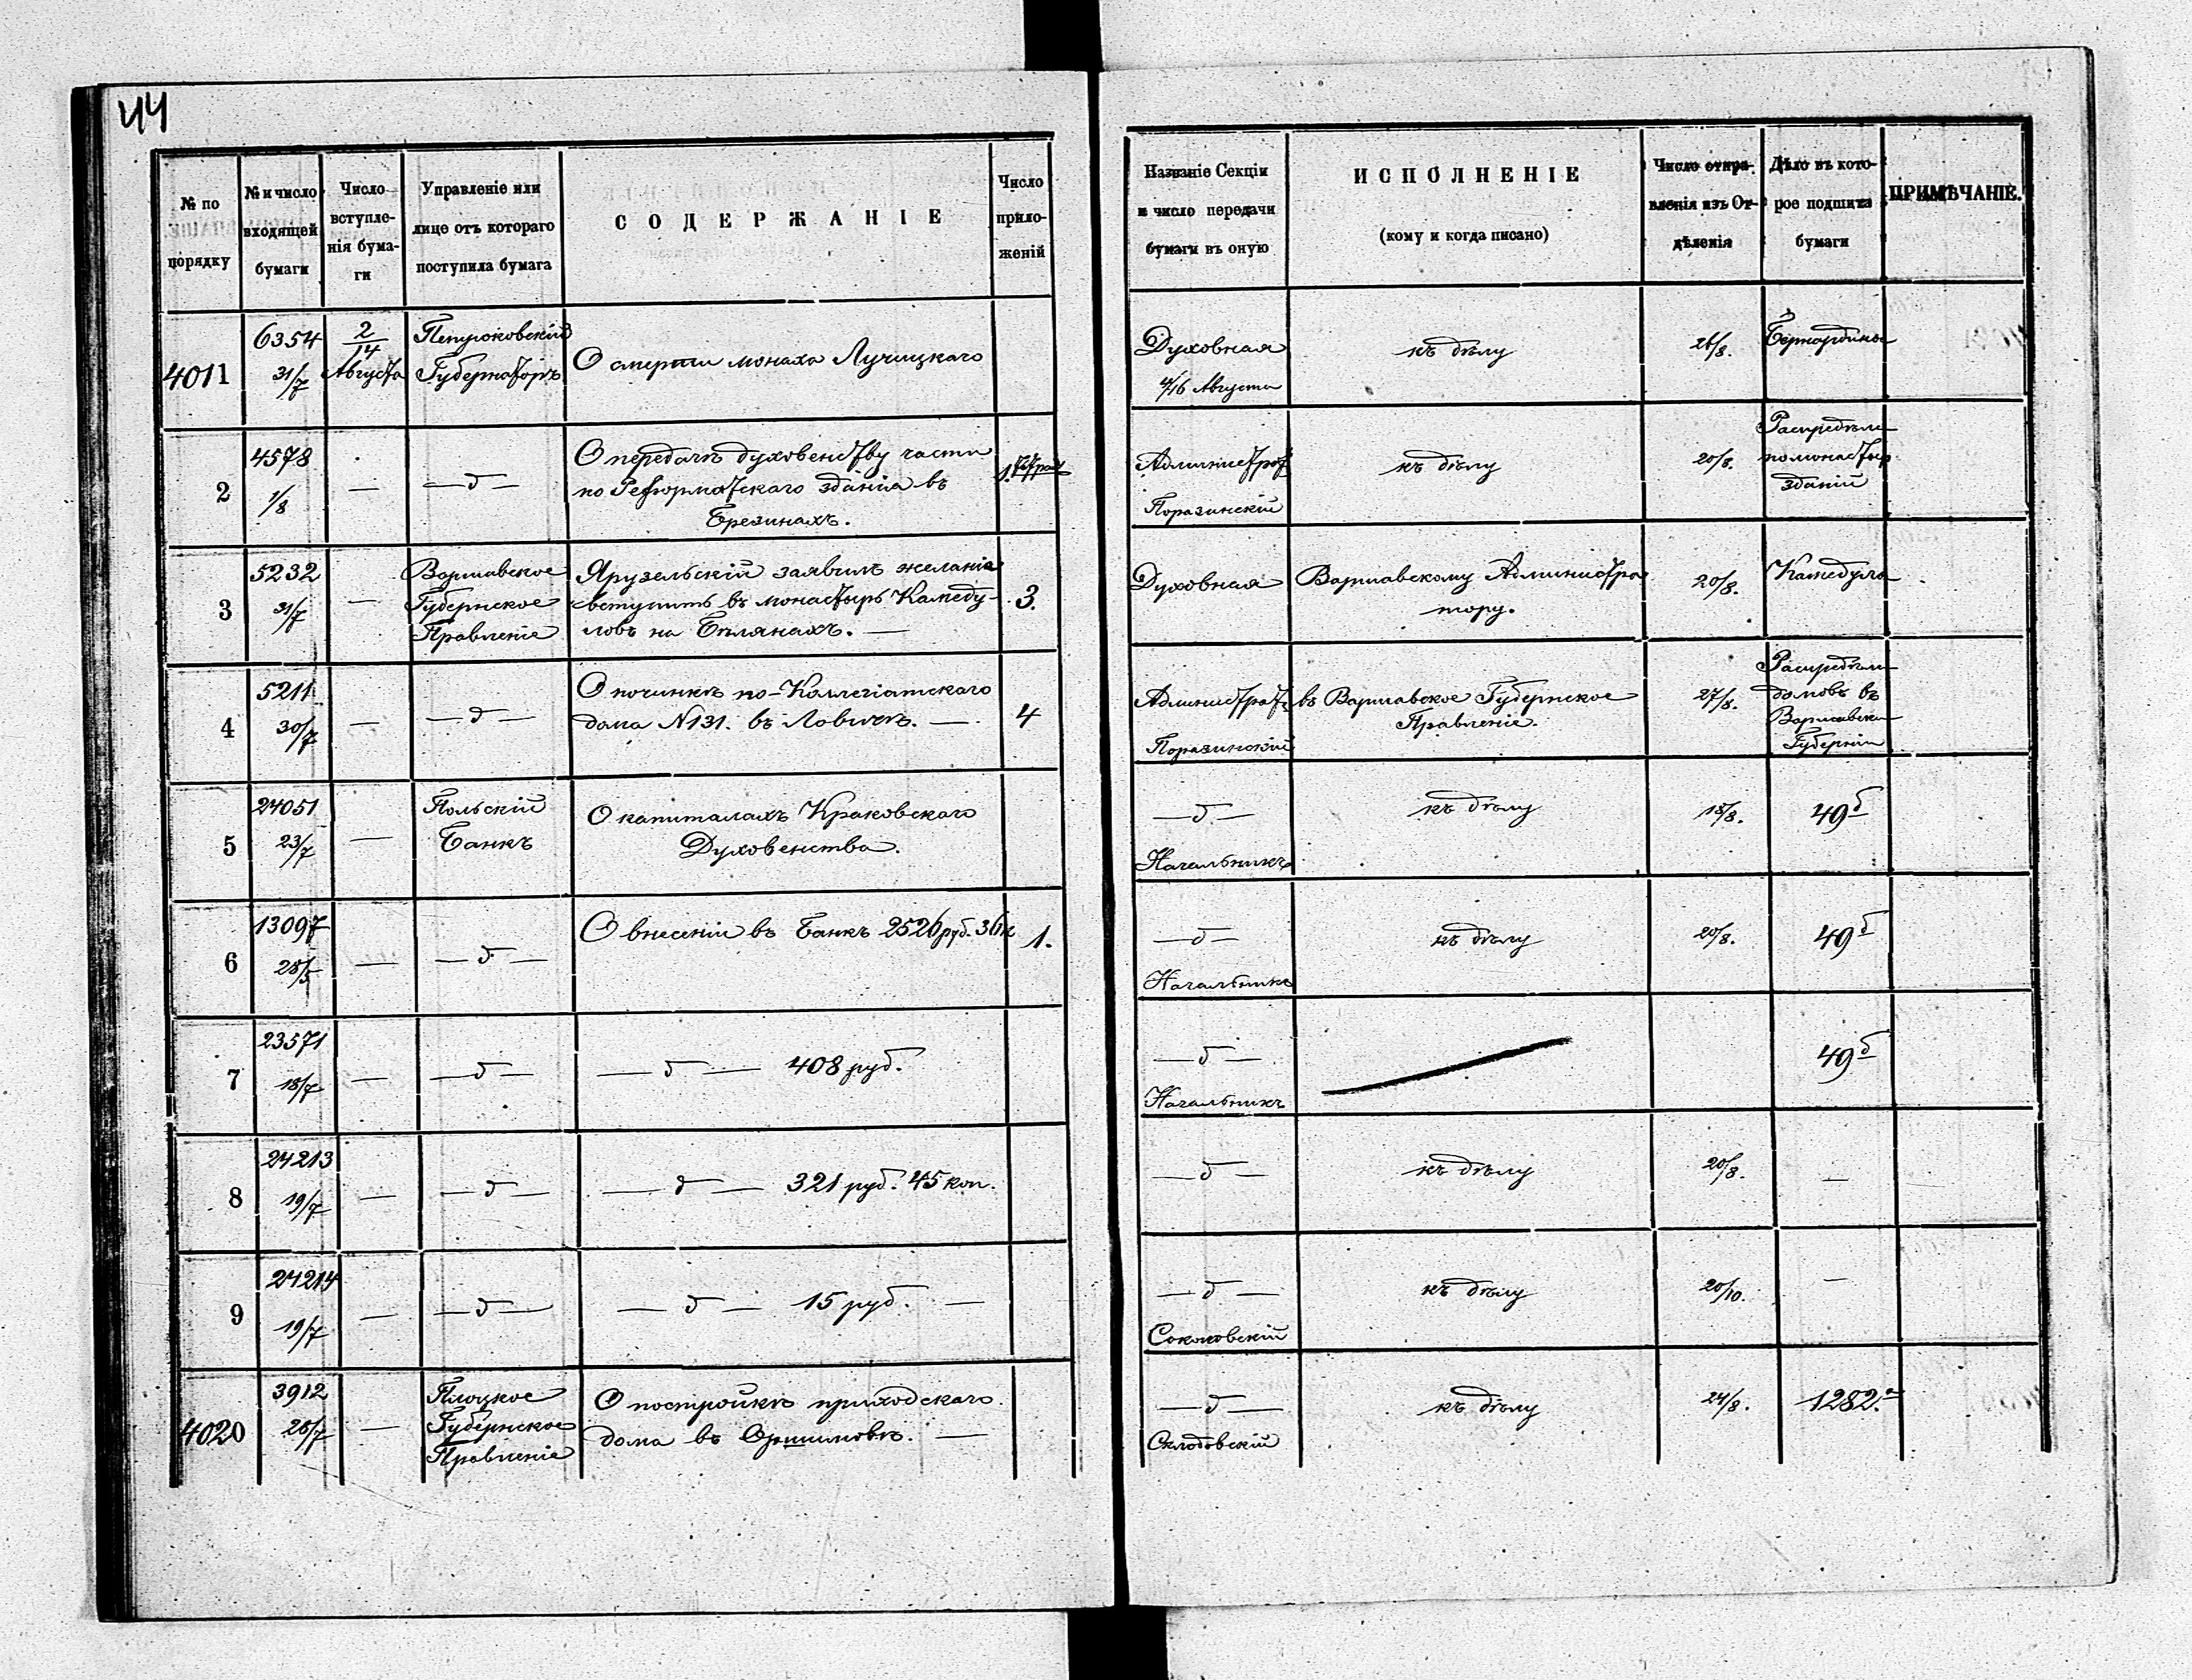 44
№ по порядку
№ и число входящей бумаги
Число вступленія бумаги
Управленіе или лице отъ котораго поступила бумага
СОДЕРЖАНІЕ
Число приложеній
Названіе Секціи и число передачи бумаги въ оную
ИСПОЛНЕНІЕ
(кому и когда писано)
Число отправленія изъ Отдѣленія
Дѣло въ которое подшита бумаги
ПРИМѢЧАНІЕ.
4011
6354
31/7
2/14
Августа
Петроковскій
Губернаторъ
О смерти монаха Лучицкаго
Духовная
4/16 Августа
къ дѣлу
26/8.
2
4578
1/8
—
— д —
О передачѣ духовенству части
по Реформатскаго зданія въ
Брезинахъ.
1.
Администрат
Поразинскій
къ дѣлу
20/8.
Распредѣл
по монастыр
зданій
3
5232
31/7
—
Варшавское
Губернское
Правленіе
Ярузельскій заявилъ желаніе
вступить въ монастырь Камеду-
ловъ на Бѣлянахъ. —
3.
Духовная
Варшавскому Администра
тору.
20/8.
Камедула
4
5211
30/7
—
— д —
О починкѣ по-Коллегіатскаго
дома N 131. въ Ловичѣ. —
4
Администрат
Поразинскій
въ Варшавское Губернское
Правленіе.
27/8.
Распредѣл
домовъ въ
Варшавск
Губерніи
5
24051
23/7
—
Польскій
Банкъ
О капиталахъ Краковскаго
Духовенства.
— д —
Начальникъ
къ дѣлу
18/8.
49 б
6
13097
28/5
—
— д —
О внесеніи въ Банкъ 2526 руб. 36 к
1.
— д —
Начальникъ
къ дѣлу
20/8.
49 б
7
23571
18/7
—
— д —
— д — 408 руб.
— д —
Начальникъ
49 б
8
24213
19/7
—
— д —
— д — 321 руб. 45 коп.
— д —
къ дѣлу
20/8.
—
9
24214
19/7
—
— д —
— д — 15 руб. —
— д —
Соколовскій
къ дѣлу
20/10.
—
4020
3912
28/7
—
Плоцкое
Губернское
Правленіе
О постройкѣ приходскаго
дома въ Оршимовѣ. —
— д —
Склодовскій
къ дѣлу
24/8.
1282. а